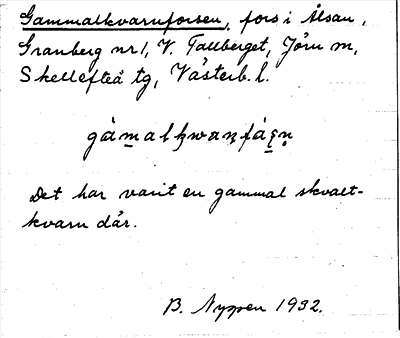 Gammalkvarnforsen, fors i Ålsån,
Granberg nr 1, V. Tallberget, Jörn m,
Skellefteå tg, Västerb. l.
Det har varit en gammal skvalt-
kvarn där.
B. Nygren 1932.